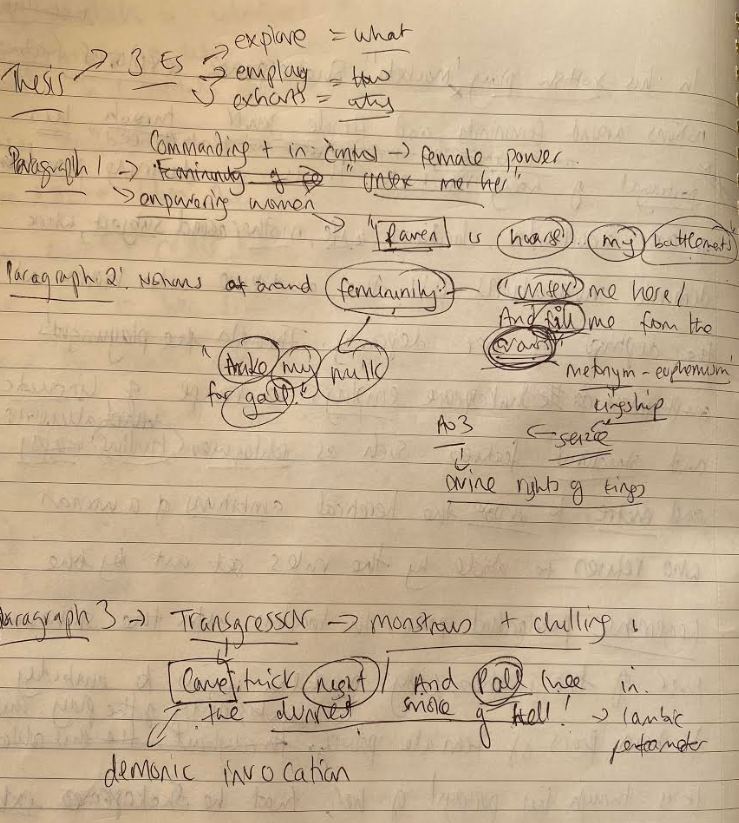 explore = what
Thesis → 3 Es → employ = how
exhorts = why
Commanding + in control → female power.
Paragraph 1 → Femininity of "Unsex me her"
→ empowering women → "Raven is hoarse" my battlements"
Paragraph 2: Notions of around femininity - "unsex me here/
And fill me from the
crown"
"take my milk
for gall!"
metonym - euphemism
kingship
A03 ← seize
Divine rights of kings
Paragraph 3 → Transgressor → monstrous + chilling
"Come, thick night / And Pall thee in
the dunnest smoke of Hell! → iambic
pentameter
demonic invocation